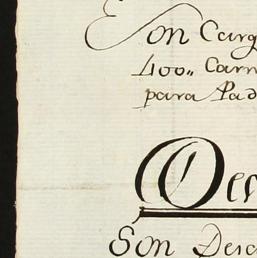 Son Carg
400,, Carn
para Pad
Des
Son Desc